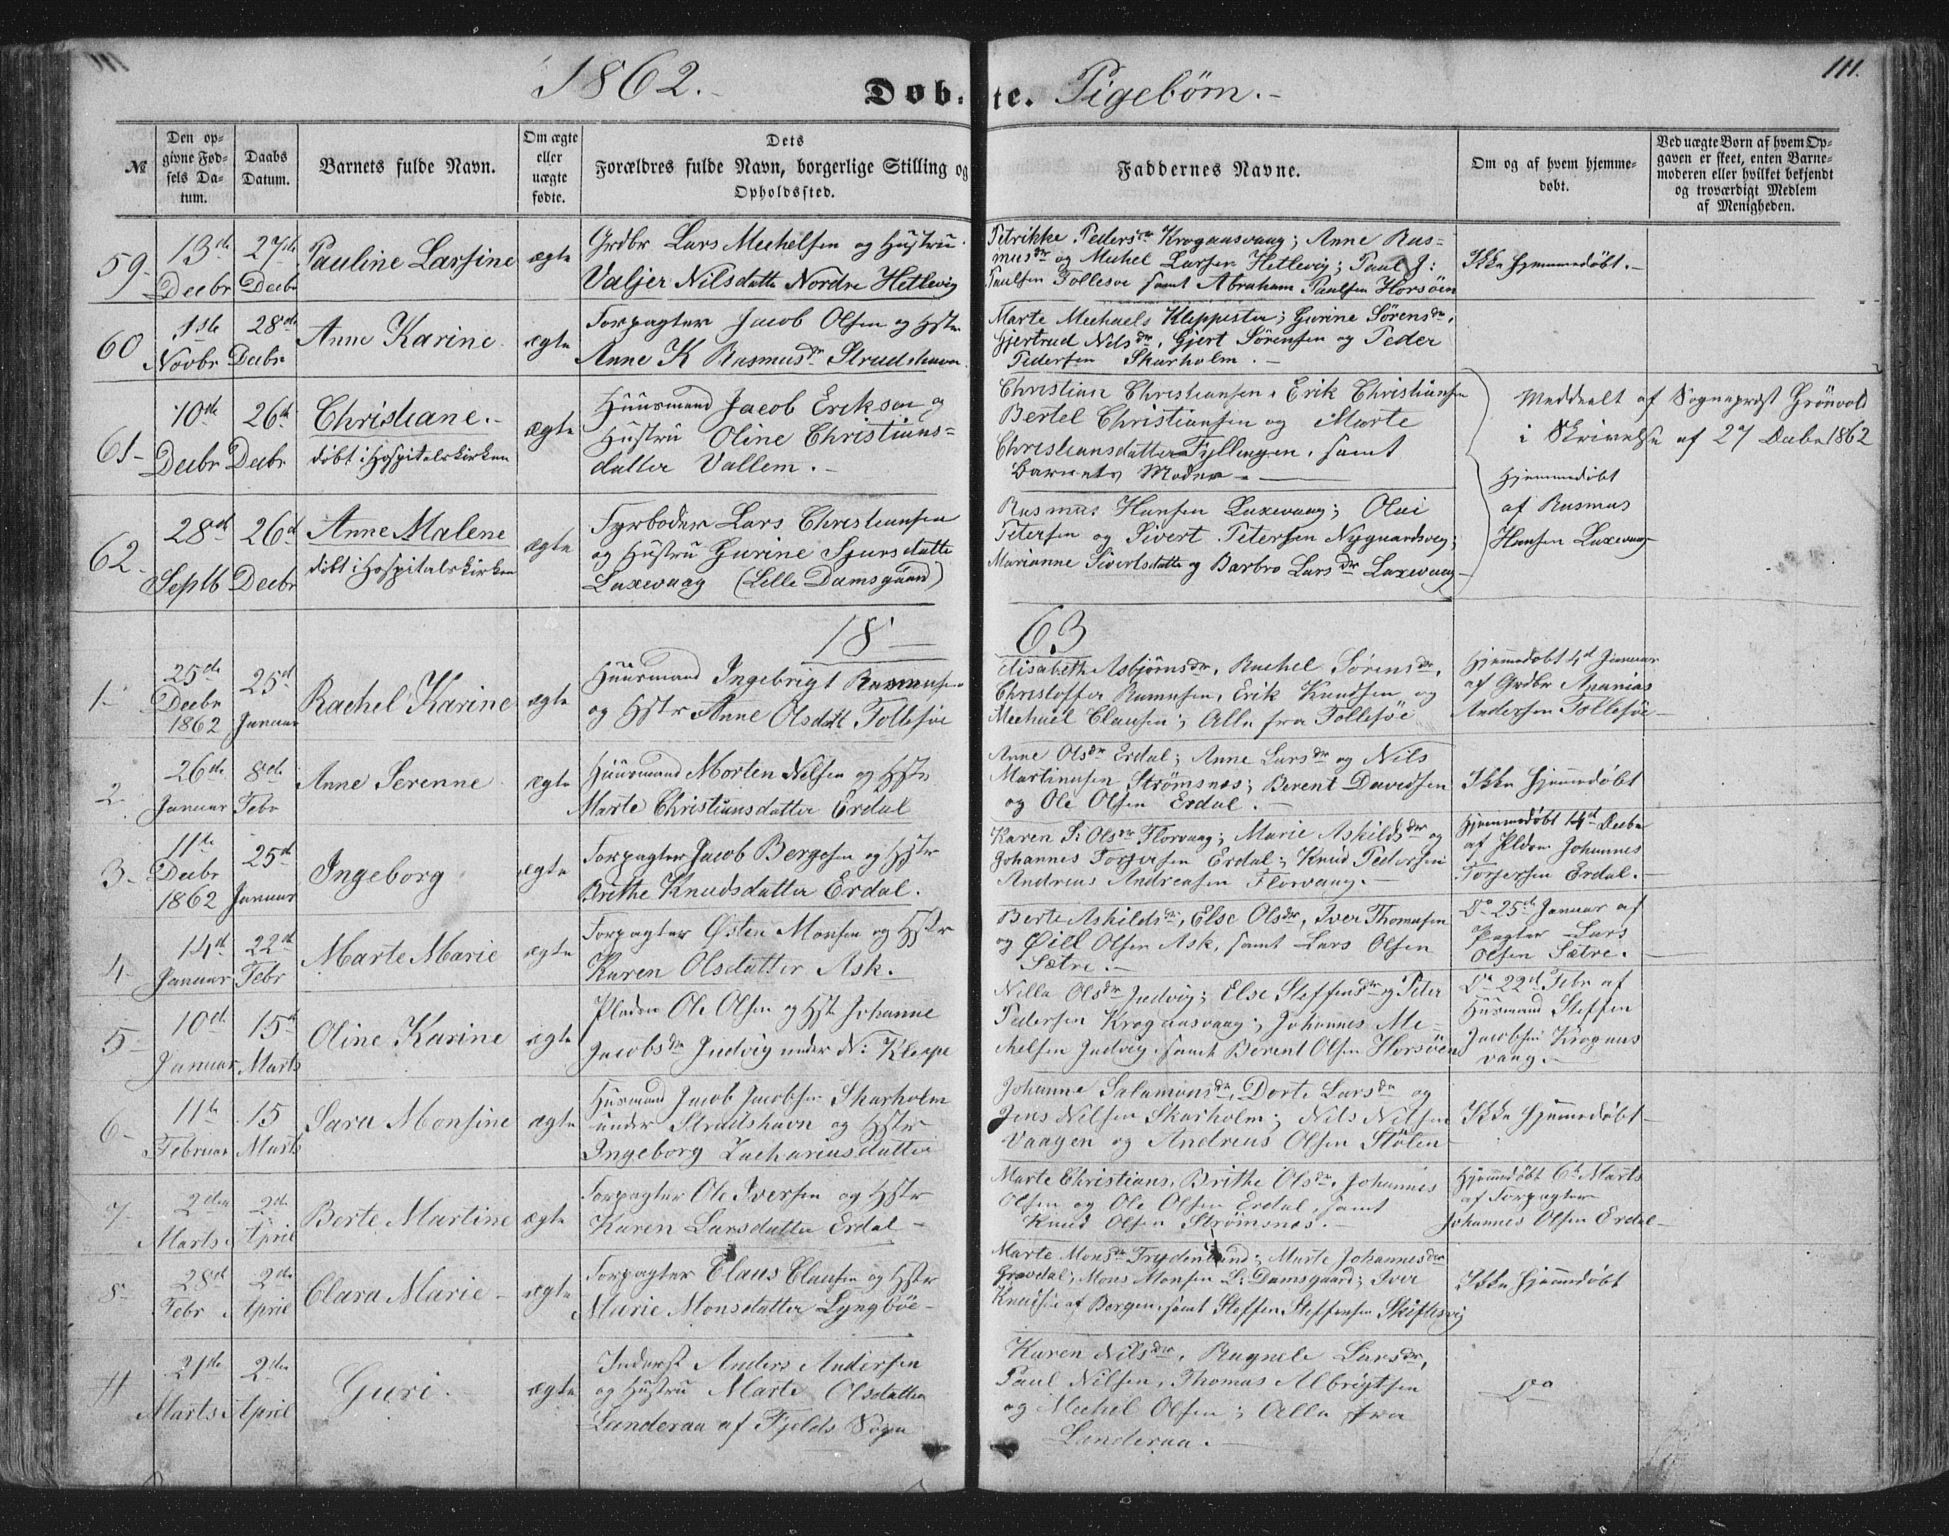 1862. Døbte. Pigebørn.
111.
№
Den opgivne Fødsels Datum.
Daabs Datum.
Barnets fulde Navn.
Om ægte eller uægte fødte.
Dets Forældres fulde Navn, borgerlige Stilling og Opholdssted.
Faddernes Navne.
Om og af hvem hjemmedøbt.
Ved uægte Børn af hvem Opgaven er skeet, enten Barnemoderen eller hvilket bekjendt og troværdigt Medlem af Menigheden.
59
13de Decbr
27de Decbr
Pauline Larsine
ægte
Grdbr Lars Mechelsen og Hustru
Valjer Nilsdatter Nordre Hetlevig
Petrikke Pedersdr Krogaasvaag; Anne Ras=
musdr og Michel Larsen Hetlevig; Paul J:
Paulsen Follesøe samt Abraham Paulsen Horsøen
Ikke hjemmedøbt.
60
1ste Novbr
28de Decbr
Anne Karine
ægte
Forpagter Jacob Olsen og Hstr
Anne K Rasmusdr Strudshavn
Marte Mechaels Kleppestø; Gurine Sørensdr,
Gjertrud Nilsdr, Gjert Sørensen og Peder
Pedersen Skarholm.
61
10de Decbr
26de Decbr
Christiane.
døbt i Hospitalskirken
ægte
Huusmand Jacob Eriksen og
Hustru Oline Christians=
datter Vallem.
Christian Christiansen, Erik Christiansen
Bertel Christiansen og Marte
Christiansdatter Fyllingen, samt
Barnets Moder
Meddeelt af Sognepræst Grønvold
i Skrivelse af 27 Decbr 1862
62
28de Septb
26de Decbr
Anne Malene
døbt i Hospitalskirken
ægte
Fyrbøder Lars Christiansen
og Hustru Gurine Sjursdatter
Laxevaag (Lille Damsgaard)
Rasmus Hansen Laxevaag; Olai
Petersen og Sivert Petersen Nygaardsveg;
Marianne Sivertsdatter og Barbro Larsdr Laxevaag
Hjemmedøbt
af Rasmus
Hansen Laxevaag
1863
1
25de Decbr 1862
25de Januar
Rachel Karine
ægte
Huusmand Ingebrigt Rasmusen
og Hstr Anne Olsdatt Follesøe
Elisabeth Asbjørnsdr, Rachel Sørensdr,
Christoffer Rasmusen, Erik Knudsen og
Mechael Clausen; Alle fra Follesøe
Hjemmedøbt 4de Januar
af Grdbr Ananias
Andersen Follesøe
2
26de Januar
8de Febr
Anne Serenne
ægte
Huusmand Morten Nilsen og Hstr
Marte Christiansdatter Erdal
Anne Olsdr Erdal; Anne Larsdr og Nils
Martinusen Strømsnes; Berent Davidsen
og Ole Olsen Erdal.
Ikke hjemmedøbt
3
11te Decbr 1862
25de Januar
Ingeborg
ægte
Forpagter Jacob Bergesen og Hstr
Brithe Knudsdatter Erdal.
Karen S. Olsdr Florvaag; Marie Askildsdr og
Johannes Torjersen Erdal; Knud Pedersen
Andreas Andreasen Florvaag.
Hjemmedøbt 14de Decbr
af Pldsm Johannes
Torjersen Erdal.
4
14de Januar
22de Febr
Marte Marie
ægte
Forpagter Østen Monsen og Hstr
Karen Olsdatter Ask.
Berte Askildsdr, Else Olsdr, Iver Thomasen
og Øill Olsen Ask, samt Lars Olsen
Sætre.
Do 25de Januar af
Pagter Lars
Olsen Sætre.
5
10de Januar
15de Marts
Oline Karine
ægte
Pladsm Ole Olsen og Hst Johanne
Jacobsdr Judvig under N: Kleppe
Nille Olsdr Judvig; Else Steffensdr og Peter
Pedersen Krogaasvaag; Johannes Me=
chelsen Judvig, samt Berent Olsen Horsøen
Do 22de Febr af
Husmand Steffen
Jacobsen Krogaas
vaag.
6
11te Februar
15 Marts
Sara Monsine
ægte
Husmand Jacob Jacobsen Skarholm
under Strudshavn og Hstr
Ingeborg Zachariasdatter
Johanne Salamonsdr, Dorte Larsdr og
Jens Nilsen Skarholm; Nils Nilsen
Vaagen og Andreas Olsen Støten
Ikke hjemmedøbt
7
2den Marts
2den April
Berte Martine
ægte
Forpagter Ole Iversen og Hstr
Karen Larsdatter Erdal
Marte Christians, Brithe Olsdr, Johannes
Olsen og Ole Olsen Erdal, samt
Knud Olsen Strømsnes.
Hjemmedøbt 6te Marts
af Forpagter
Johannes Olsen Erdal
8
28de Febr
2den April
Clara Marie
ægte
Forpagter Claus Clausen og Hstr
Marie Monsdatter Lyngbøe
Marte Monsdr Frydenlund; Marte Johannesdr
Gravdal; Mons Monsen L. Damsgaard; Iver
Knudsen af Bergen, samt Steffen Steffensen Skiftesvig
Ikke hjemmedøbt
21de Marts
2den April
Guri.
ægte
Inderst Anders Andersen
og Hustru Marte Olsdatter
Landeraa af Fjelds Sogn
Karen Nilsdr, Ragnele Larsdr,
Paul Nilsen, Thomas Albrigtsen
og Mechel Olsen; Alle fra
Landeraa.
Do